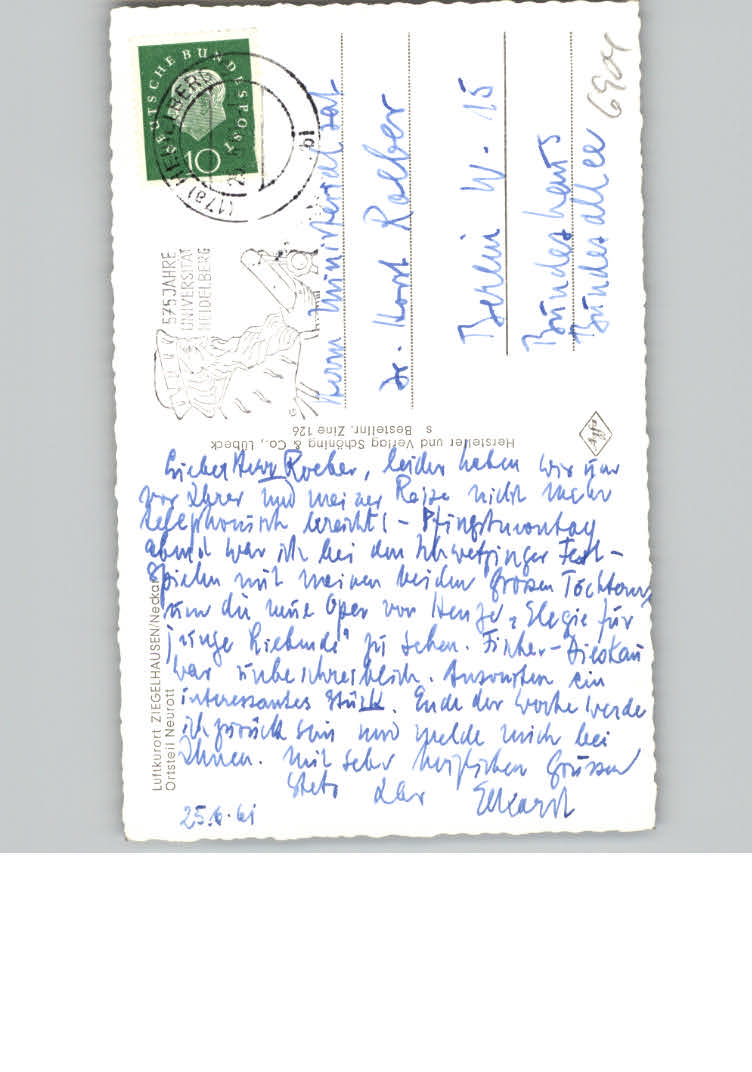 DEUTSCHE BUNDESPOST
10
(17a) HEIDELBERG
575 JAHRE
UNIVERSITÄT
HEIDELBERG
Herrn Ministerialrat
Dr. Horst Roeber
Berlin W. 15
Bundeshaus
Bundesallee
6904
Agfa
Hersteller und Verlag Schöning & Co., Lübeck
s Bestellnr. Zine 126
Luftkurort ZIEGELHAUSEN/Neckar
Ortsteil Neurott
Lieber Herr Roeber, leider haben wir uns
vor Ihrer und meiner Reise nicht mehr
telephonisch erreicht! - Pfingstmontag
abend war ich bei den Schwetzinger Fest-
spielen mit meinen beiden großen Töchtern,
um die neue Oper von Henze „Elegie für
junge Liebende" zu sehen. Fischer-Dieskau
war unbeschreiblich. Ansonsten ein
interessantes Stück. Ende der Woche werde
ich zurück sein und melde mich bei
Ihnen. Mit sehr herzlichen Grüssen
Stets Ihr
25.6.61